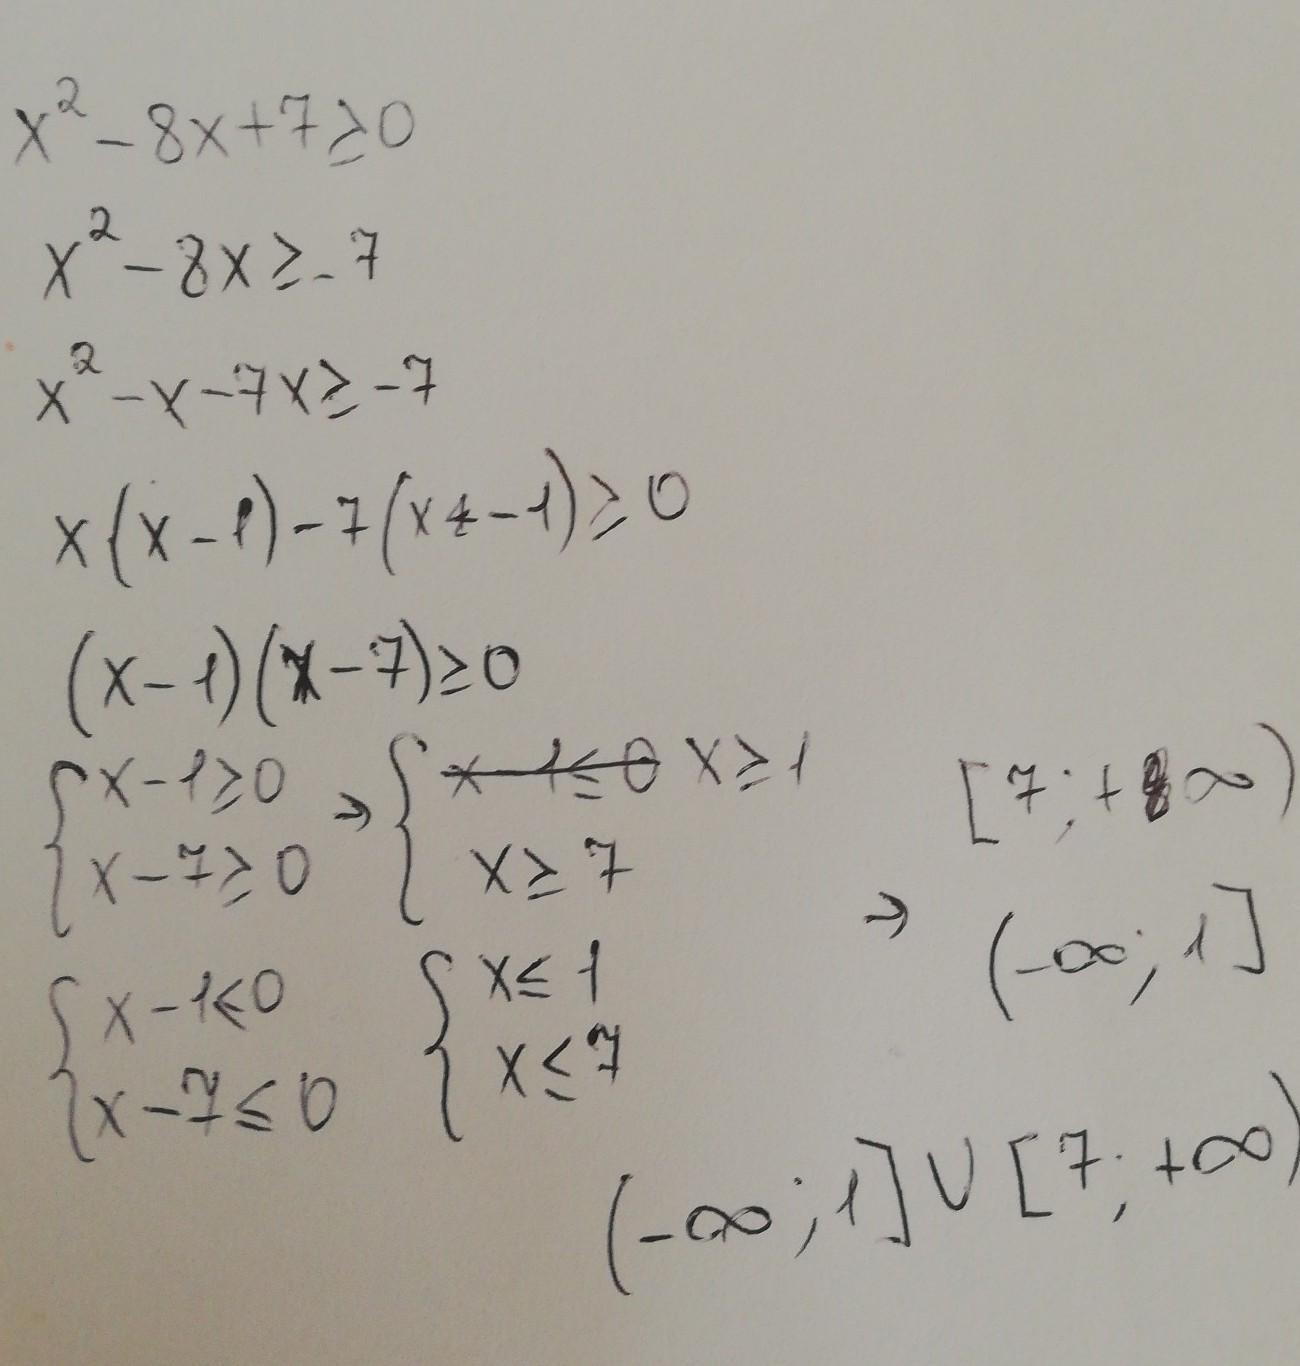 x² - 8x + 7 ≥ 0
x² - 8x ≥ -7
x² - x - 7x ≥ -7
x(x - 1) - 7(x - 1) ≥ 0
(x - 1)(x - 7) ≥ 0
{ x - 1 ≥ 0 → { x - 1 ≤ 0 x ≥ 1 [7; +∞)
x - 7 ≥ 0 x ≥ 7
→ (-∞; 1]
{ x - 1 ≤ 0 { x ≤ 1
x - 7 ≤ 0 x ≤ 7
(-∞; 1] ∪ [7; +∞)